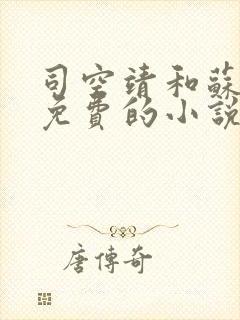 司空靖和蘇
免費的小說
唐傳奇